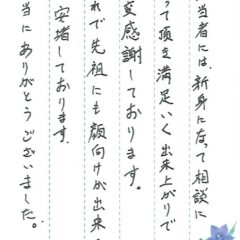 当者には、新身になって相談に
って頂き満足いく出来上がりで
変感謝しております。
れで先祖にも顔向けが出来
安堵しております。
当にありがとうございました。